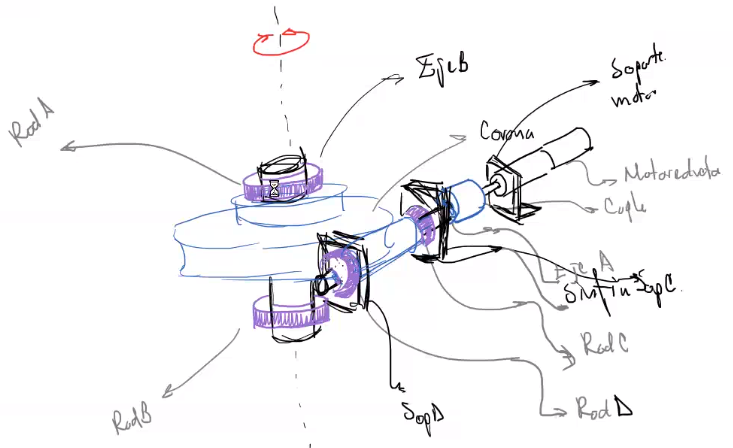 EjeB
Soporte
motor
Rod A
Corona
Motoreductor
Cople
Eje A
Sinfin SopC
Rod C
SopD
Rod D
Rod B